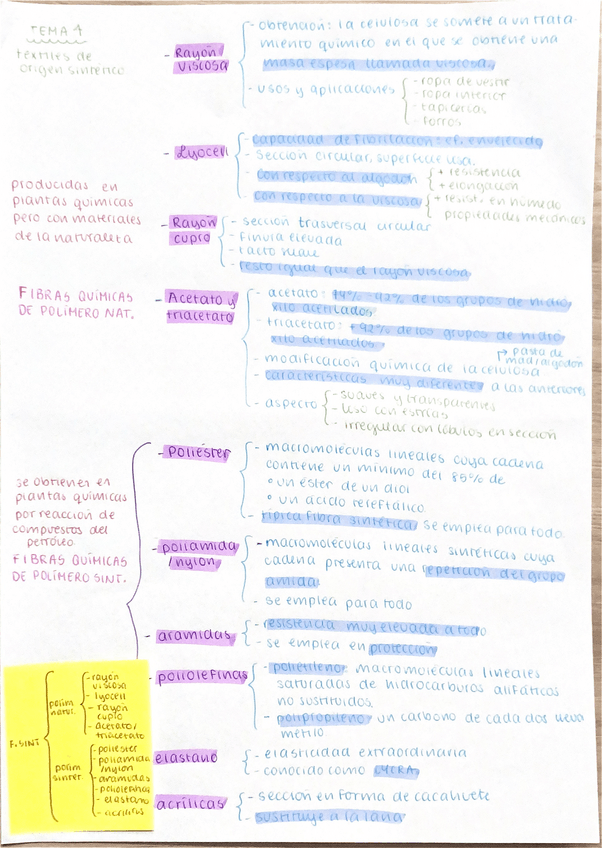 TEMA 4
textiles de
origen sintético
- Rayón
viscosa
- obtención: la celulosa se somete a un trata-
miento químico en el que se obtiene una
masa espesa llamada viscosa.
- usos y aplicaciones
- ropa de vestir
- ropa interior
- tapicerías
- forros
- Lyocell
- capacidad de fibrilación: ef. envejecido
- sección circular, superficie lisa.
- con respecto al algodón
+ resistencia
+ elongación
- con respecto a la viscosa
+ resist. en húmedo
propiedades mecánicas
producidas en
plantas químicas
pero con materiales
de la naturaleza
FIBRAS QUÍMICAS
DE POLÍMERO NAT.
- Rayón
cupro
- sección trasversal circular
- finura elevada
- tacto suave
- resto igual que el rayón viscosa
- Acetato y
triacetato
- acetato: 74% - 92% de los grupos de hidro
xilo acetilados.
- triacetato: +92% de los grupos de hidro
xilo acetilados.
→ pasta de
mad/algodón
- modificación química de la celulosa
- características muy diferentes a las anteriores
- aspecto
- suaves y transparentes
- liso con estrías
- irregular con lóbulos en sección
se obtienen en
plantas químicas
por reacción de
compuestos del
petróleo
FIBRAS QUÍMICAS
DE POLÍMERO SINT.
- poliéster
- macromoléculas lineales cuya cadena
contiene un mínimo del 85% de
° un éster de un diol
° un ácido tereftálico.
- típica fibra sintética, se emplea para todo
- poliamida
/nylon
- macromoléculas lineales sintéticas cuya
cadena presenta una repetición del grupo
amida.
- se emplea para todo
- aramidas
- resistencia muy elevada a todo
- se emplea en protección
- poliolefinas
- polietileno: macromoléculas lineales
saturadas de hidrocarburos alifáticos
no sustituidos.
- polipropileno: un carbono de cada dos lleva
metilo
elastano
- elasticidad extraordinaria
- conocido como LYCRA
acrílicas
- sección en forma de cacahuete
- sustituye a la lana
F. SINT
polím
natur.
- rayón
viscosa
- lyocell
- rayón
cupro
- acetato/
triacetato
polím
sintét.
- poliéster
- poliamida
/nylon
- aramidas
- poliolefinas
- elastano
- acrílicas